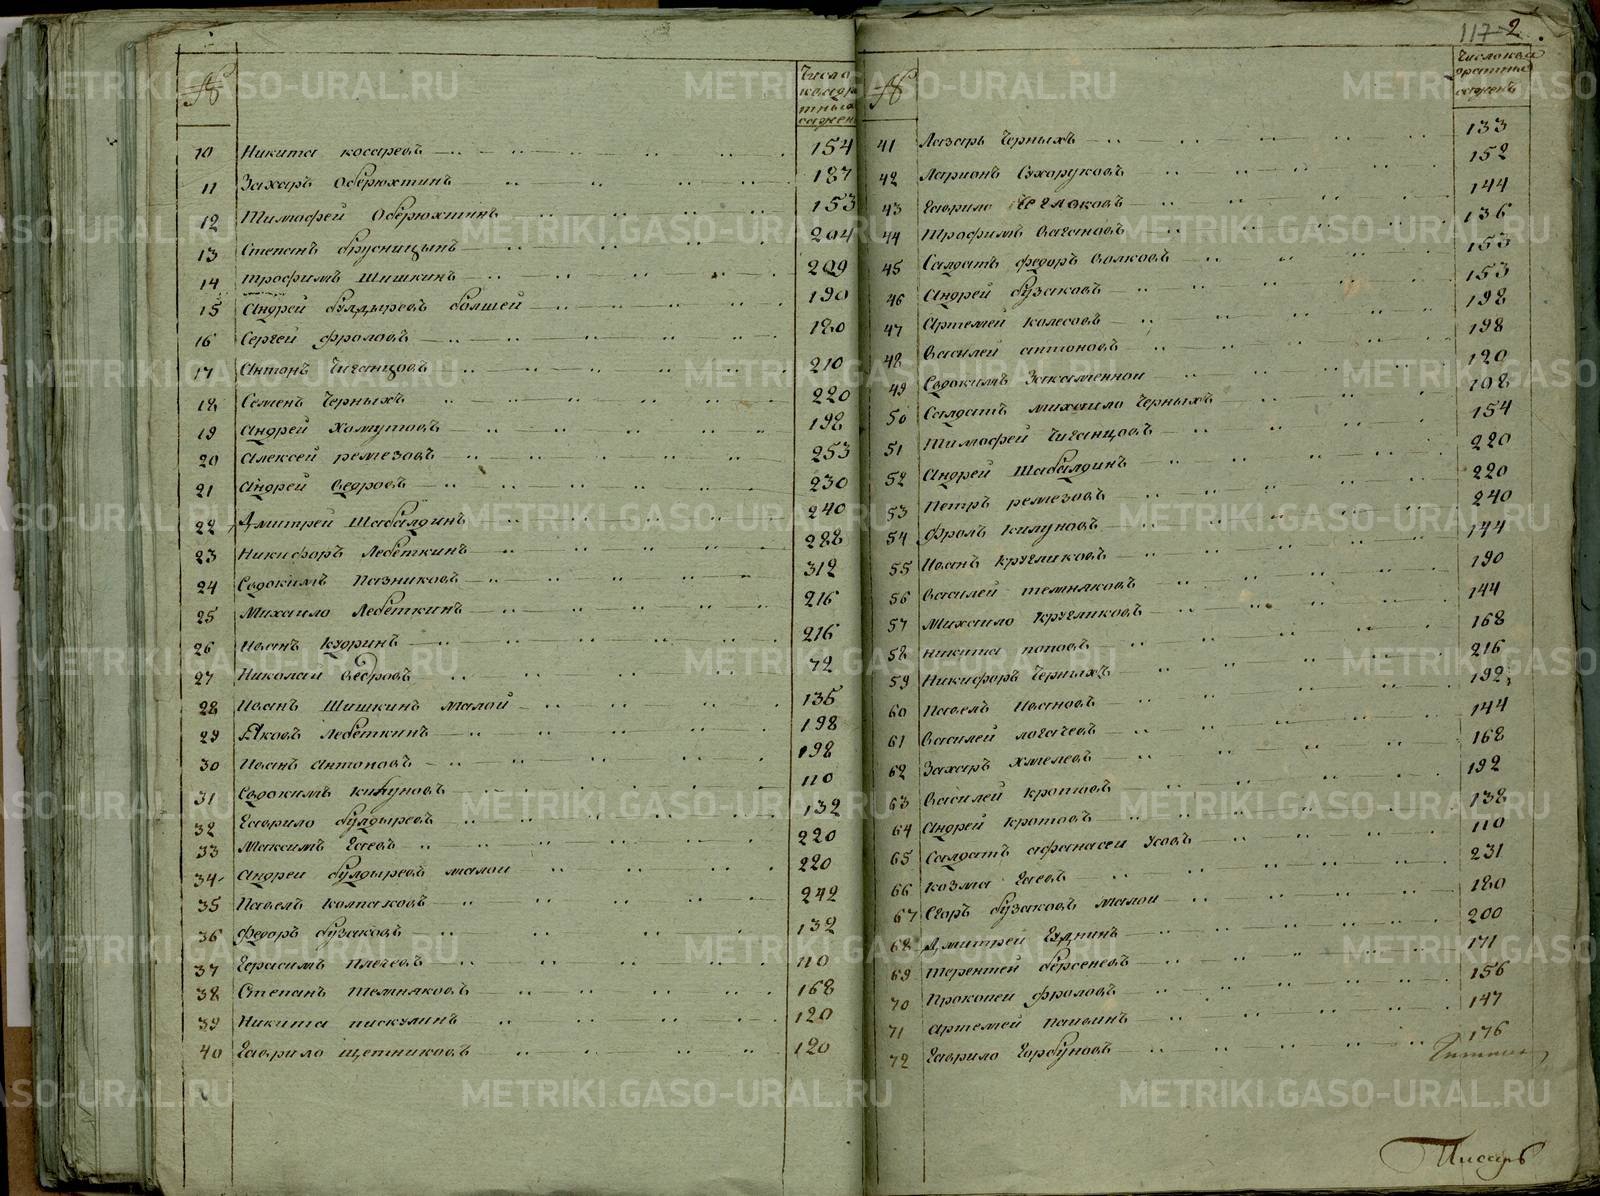 №
Число
квадра
тныхъ
сажень
10 Никита косаревъ 154
11 Захаръ Оберюхтинъ 187
12 Тимофей Оберюхтинъ 153
13 Степанъ брусницынъ 204
14 трофимъ Шишкинъ 209
15 Андрей булдыревъ болшей 190
16 Сергей фроловъ 180
17 Антонъ Чиганцовъ 210
18 Семенъ Черныхъ 220
19 Андрей Хомутовъ 198
20 Алексей ремезовъ 253
21 Андрей ведровъ 230
22 Дмитрей Шабалдинъ 240
23 Никифоръ Лебеткинъ 288
24 Евдокимъ Пазниковъ 312
25 Михаило Лебеткинъ 216
26 Иванъ Кудринъ 216
27 Николай ведровъ 72
28 Иванъ Шишкинъ малой 135
29 Яковъ Лебеткинъ 198
30 Иванъ антоновъ 198
31 Евдокимъ Килуновъ 110
32 Гаврило булдыревъ 132
33 Максимъ Гаевъ 220
34 Андреи булдыревъ малои 220
35 Павелъ Колпаковъ 242
36 федоръ бузаковъ 132
37 Герасимъ Плечевъ 110
38 Степанъ Темняковъ 168
39 Никита пискулинъ 120
40 Гаврило щетниковъ 120
117 2
№
Число ква
дратны
сажень
41 Лазарь Черныхъ 133
42 Ларионъ Сухоруковъ 152
43 Гаврило Чеглоковъ 144
44 Трофимъ вагановъ 136
45 Салдатъ федоръ волковъ 153
46 Андрей бузаковъ 153
47 Артемей колесовъ 198
48 Василей антоновъ 198
49 Евдокимъ Закаменнои 120
50 Салдатъ михаило Черныхъ 108
51 Тимофей Чиганцовъ 154
52 Андрей Шабалдинъ 220
53 Петръ ремезовъ 220
54 Фролъ Килуновъ 240
55 Иванъ Кругликовъ 144
56 Василей темняковъ 190
57 Михаило Кругликовъ 144
58 никита поповъ 168
59 Никифоръ Черныхъ 216
60 Павелъ Ивановъ 192
61 Василей логачевъ 144
62 Захаръ Хмелевъ 168
63 Василей кротовъ 192
64 Андрей кротовъ 138
65 Салдатъ афанасеи Усовъ 110
66 Козма Гаевъ 231
67 Егоръ бузаковъ малои 180
68 Дмитрей Гуднинъ 200
69 терентей берсеневъ 171
70 Прокопей фроловъ 156
71 Артемей Павлинъ 147
72 Гаврило Горбуновъ 176
Писарь
METRIKI.GASO-URAL.RU